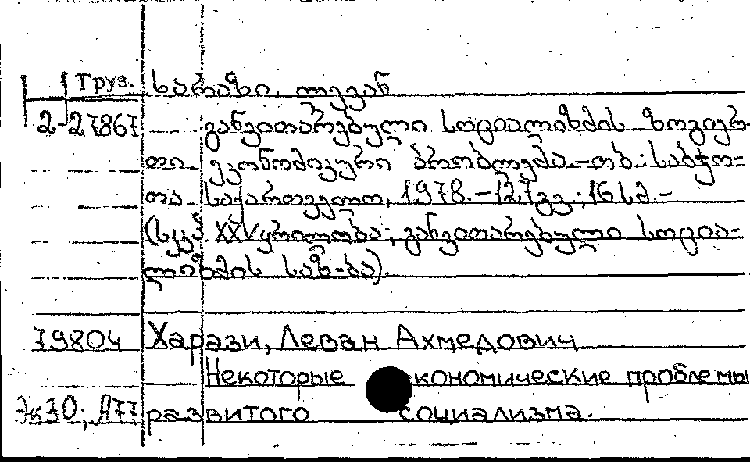 Груз. ხარაზი, ლევან
2-27867 განვითარებული სოციალიზმის ზოგიერ-
თი ეკონომიკური პრობლემა.-თბ.: საბჭო-
თა საქართველო, 1978.-127გვ.; 16სმ.-
(სკკპ XXV ყრილობა; განვითარებული სოცია-
ლიზმის საზ-ბა).
79804 Харази, Леван Ахмедович
Некоторые кономические проблемы
Эк30; А77 развитого социализма.